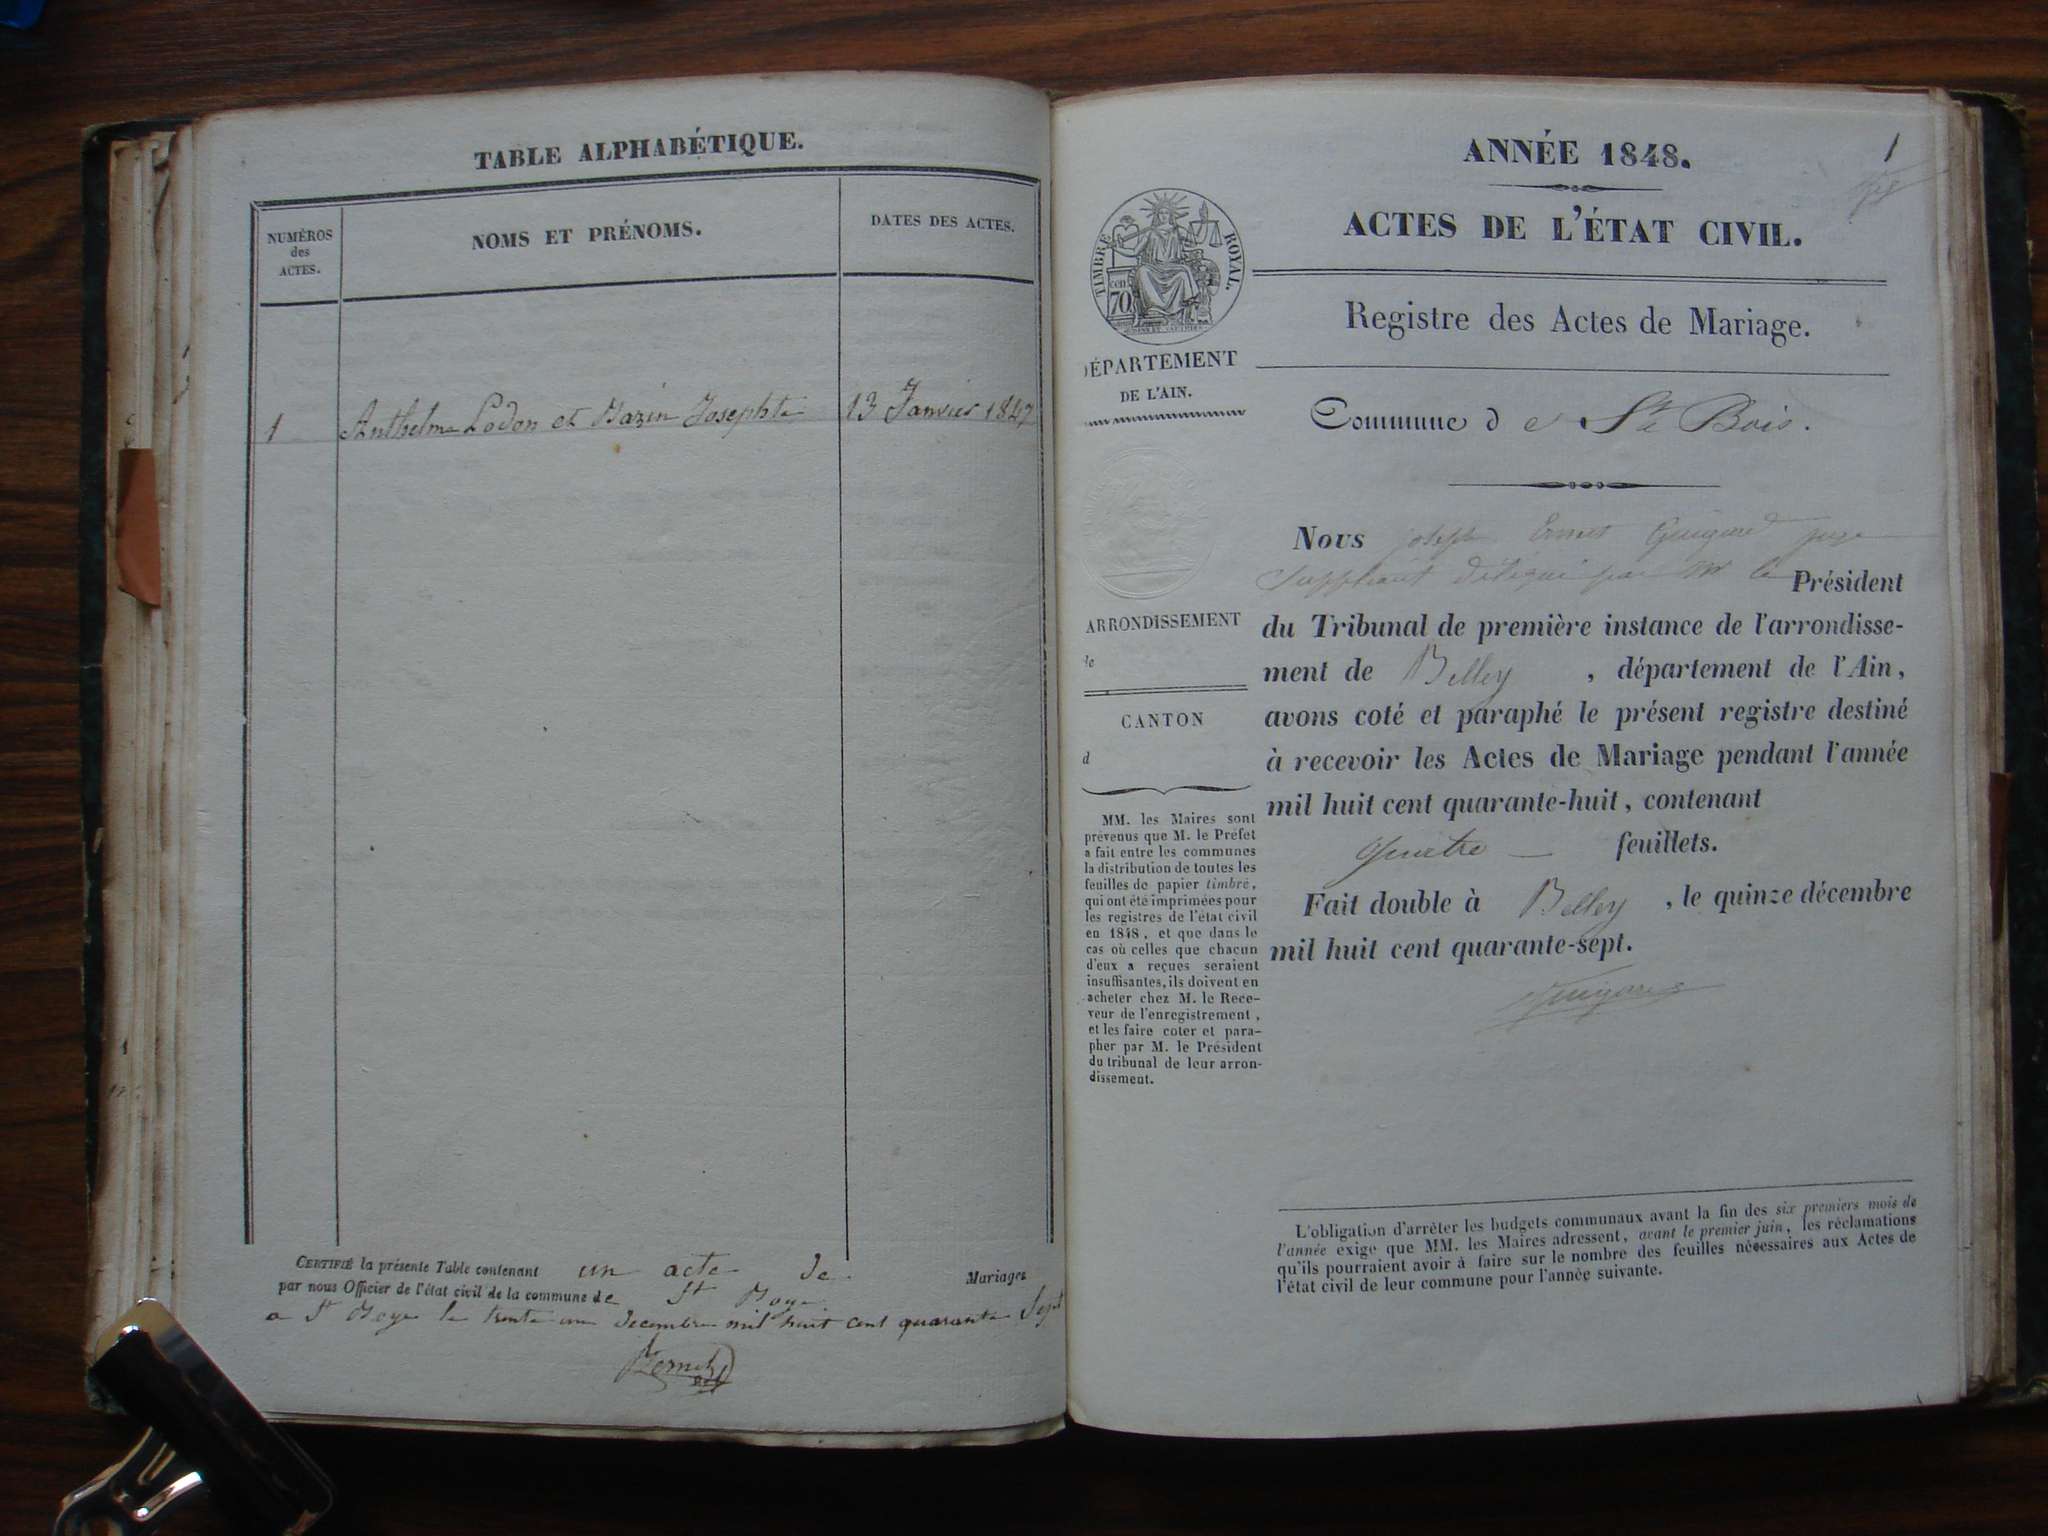 TABLE ALPHABÉTIQUE.
NUMÉROS
des
ACTES.
NOMS ET PRÉNOMS.
DATES DES ACTES.
1 Anthelme Lodon et Bazin Josephte 13 Janvier 1847
CERTIFIÉ la présente Table contenant un acte de Mariages
par nous Officier de l'état civil de la commune de St Boye
a St Boye le trente un decembre mil huit cent quarante Sept
1
ANNÉE 1848.
ACTES DE L'ÉTAT CIVIL.
TIMBRE ROYAL.
cen
70
Registre des Actes de Mariage.
DÉPARTEMENT
DE L'AIN.
Commune d e St Bois.
Nous joseph Ernest Guigard juge
Suppléant délégué par Mr le Président
du Tribunal de première instance de l'arrondisse-
ment de Belley , département de l'Ain,
avons coté et paraphé le présent registre destiné
à recevoir les Actes de Mariage pendant l'année
mil huit cent quarante-huit, contenant
quatre feuillets.
Fait double à Belley , le quinze décembre
mil huit cent quarante-sept.
ARRONDISSEMENT
de
CANTON
d
MM. les Maires sont
prévenus que M. le Préfet
a fait entre les communes
la distribution de toutes les
feuilles de papier timbré,
qui ont été imprimées pour
les registres de l'état civil
en 1848, et que dans le
cas où celles que chacun
d'eux a reçues seraient
insuffisantes, ils doivent en
acheter chez M. le Rece-
veur de l'enregistrement,
et les faire coter et para-
pher par M. le Président
du tribunal de leur arron-
dissement.
L'obligation d'arrêter les budgets communaux avant la fin des six premiers mois de
l'année exige que MM. les Maires adressent, avant le premier juin, les réclamations
qu'ils pourraient avoir à faire sur le nombre des feuilles nécessaires aux Actes de
l'état civil de leur commune pour l'année suivante.